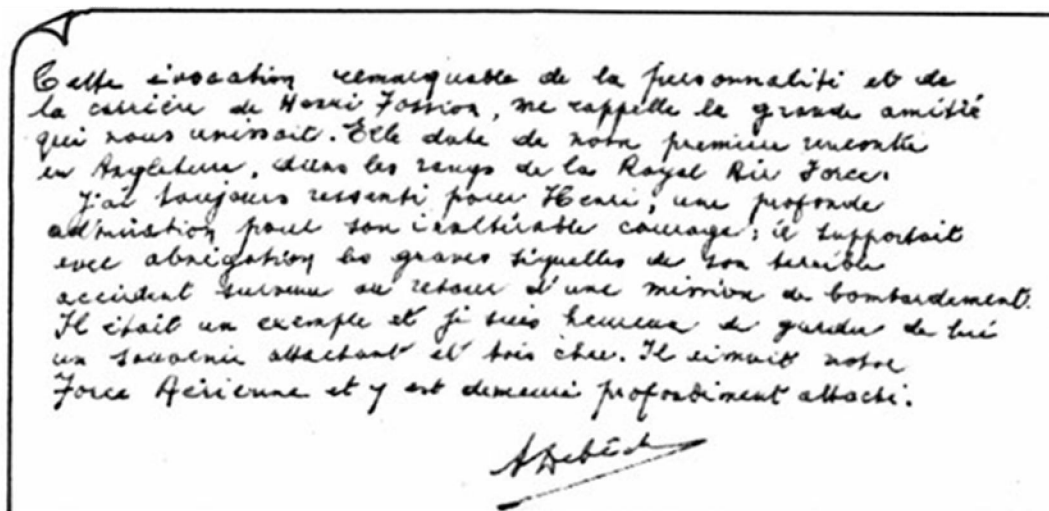 Cette évocation remarquable de la personnalité et de
la carrière de Henri Fossion, me rappelle la grande amitié
qui nous unissait. Elle date de notre première rencontre
en Angleterre, dans les rangs de la Royal Air Force.
J'ai toujours ressenti pour Henri, une profonde
admiration pour son inaltérable courage; il supportait
avec abnégation les graves séquelles de son terrible
accident survenu au retour d'une mission de bombardement.
Il était un exemple et je suis heureux de garder de lui
un souvenir attachant et très cher. Il aimait notre
Force Aérienne et y est demeuré profondément attaché.